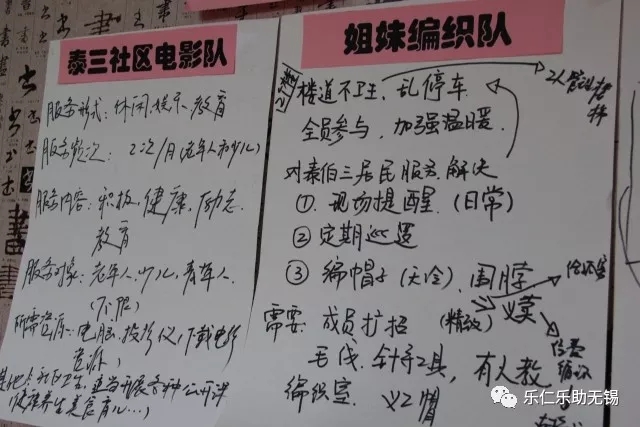 泰三社区电影队
服务形式：休闲，娱乐，教育
服务频次：2次/月(老年人和少儿)
服务内容：积极，健康，励志，
教育
服务对象：老年人，少儿，青年人
(不限)
所需资源：电脑，投影仪，下载电影
资源
社区卫生，适当开展各种公开课
(健康养生美食育儿…)
姐妹编织队
楼道不卫生，乱停车
2人
全员参与，加强温暖
对泰伯三居民服务，解决
①. 现场提醒.(日常)
② 定期巡逻
③ 编帽子(天冷)，围脖
需要：成员扩招 (精致) 义卖
毛线，针等工具，有人教
编织室 义工情
乐仁乐助无锡